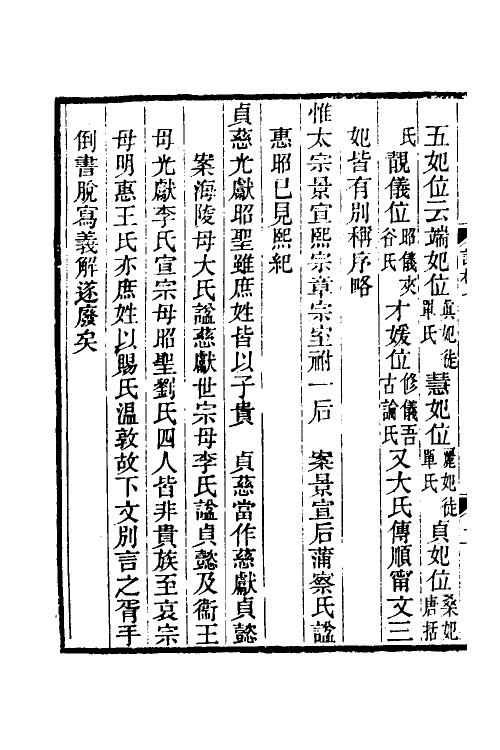 五妃位云端妃位眞妃徒單氏慧妃位麗妃徒單氏貞妃位柔妃唐括
氏靚儀位昭儀夾谷氏才媛位修儀吾古論氏又大氏傳順甯文三
妃皆有別稱序略
惟太宗景宣熙宗章宗室祔一后　案景宣后蒲察氏諡
惠昭已見熙紀
貞慈光獻昭聖雖庶姓皆以子貴　貞慈當作慈獻貞懿
案海陵母大氏諡慈獻世宗母李氏諡貞懿及衞王
母光獻李氏宣宗母昭聖劉氏四人皆非貴族至哀宗
母明惠王氏亦庶姓以賜氏温敦故下文別言之胥手
倒書脫寫義解遂廢矣